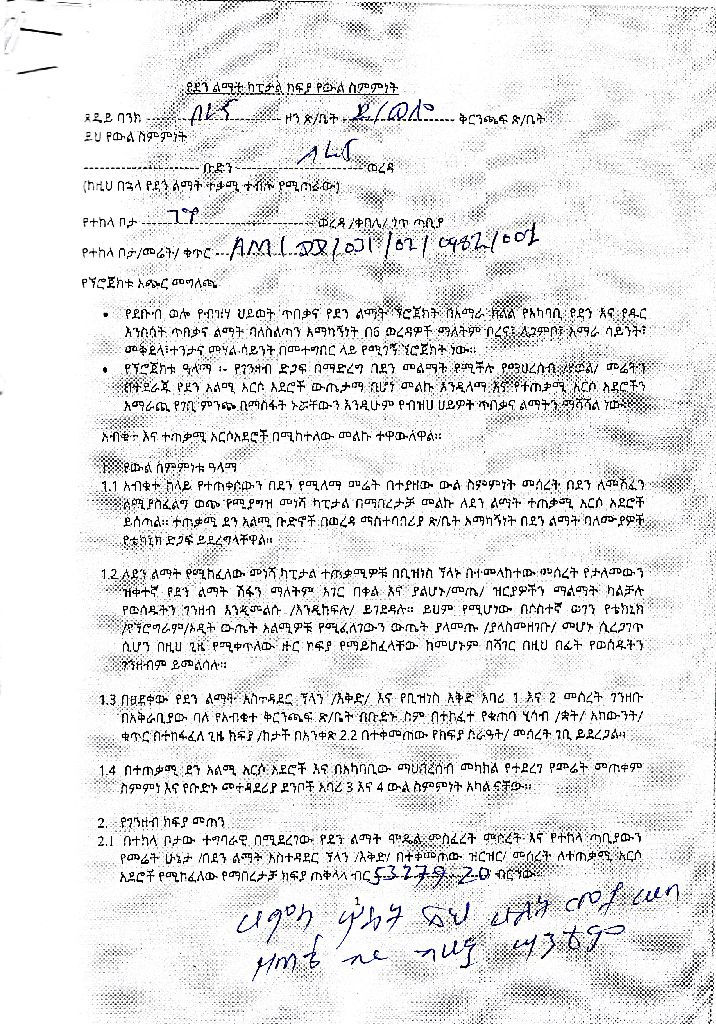 የደን ልማት ካፒታል ክፍያ የውል ስምምነት
ባንክ ---------- ቦረና ---------- ዞን ጽ/ቤት - ደ/ወሎ ---------- ቅርንጫፍ ጽ/ቤት
የውል ስምምነት
---------- ቡድን ---------- ወረዳ
(ከዚህ በኋላ የደን ልማት ተቃሚ ተብሎ የሚጠራው)
የተከላ ቦታ ---------- ወረዳ /ቀበሌ/ ጎጥ ጣቢያ
የተከላ ቦታ/መሬት/ ቁጥር --- AM/DD/031/02/0482/001
የኘሮጀክቱ አጭር መግለጫ
• የደቡብ ወሎ የብዝሃ ህይወት ጥበቃና የደን ልማት ኘሮጀክት በአማራ ክልል የአካባቢ የደን እና የዱር
እንስሳት ጥበቃና ልማት ባለስልጣን አማካኝነት በ6 ወረዳዎች ማለትም ቦረና፣ ሌጋምቦ፣ አማራ ሳይንት፣
መቅደላ፣ተንታና መሃል ሳይንት በመተግበር ላይ የሚገኝ ኘሮጀክት ነው።
• የኘሮጀክቱ ዓላማ ፡- የገንዘብ ድጋፍ በማድረግ በደን መልማት የሚችሉ የማህረሰብ /የወል/ መሬትን
በተደራጁ የደን አልሚ አርሶ አደሮች ውጤታማ በሆነ መልኩ እንዲለማ እና የተቃሚ አርሶ አደሮችን
አማራጪ የገቢ ምንጮ በማስፋት ኑሯቸውን እንዲሁም የብዝሀ ህይዎት ጥበቃና ልማትን ማሻሻል ነው፡
አብቁተ እና ተጠቃሚ አርሶአደሮች በሚከተለው መልኩ ተዋውለዋል።
1. የውል ስምምነቱ ዓላማ
1.1 አብቁተ ከላይ የተጠቀሰውን በደን የሚለማ መሬት በተያዘው ውል ስምምነት መሰረት በደን ለመሸፈን
ለሚያስፈልግ ወጭ የሚያግዝ መነሻ ካፒታል በማበረታቻ መልኩ ለደን ልማት ተጠቃሚ አርሶ አደሮች
ይሰጣል። ተጠቃሚ ደን አልሚ ቡድኖች በወረዳ ማስተባበሪያ ጽ/ቤት አማካኝነት በደን ልማት ባለሙያዎች
የቴክኒክ ድጋፍ ይደረግላቸዋል።
1.2 ለደን ልማት የሚከፈለው መነሻ ካፒታል ተጠቃሚዎቹ በቢዝነስ ኘላኑ በተመላከተው መሰረት የታለመውን
ዝቀተኛ የደን ልማት ሽፋን ማለትም አገር በቀል እና ያልሆኑ/መጤ/ ዝርያዎችን ማልማት ካልቻሉ
የወሰዱትን ገንዘብ እንዲመልሱ /እንዲከፍሉ/ ይገደዳሉ። ይህም የሚሆነው በሶስተኛ ወገን የቴክኒክ
/የኘሮግራም/ኦዲት ውጤት አልሚዎቹ የሚፈለገውን ውጤት ያላመጡ /ያላስመዘገቡ/ መሆኑ ሲረጋገጥ
ሲሆን በዚህ ጊዜ የሚቀጥለው ዙር ክፍያ የማይከፈላቸው ከመሆኑም ባሻገር በዚህ በፊት የወሰዱትን
ገንዘብም ይመልሳሉ።
1.3 በፀደቀው የደን ልማት አስተዳደር ኘላን /እቅድ/ እና የቢዝነስ እቅድ አባሪ 1 እና 2 መሰረት ገንዘቡ
በአቅራቢያው ባለ የአብቁተ ቅርንጫፍ ጽ/ቤት በቡድኑ ስም በተከፈተ የቁጠባ ሂሳብ /ቋት/ አካውንት/
ቁጥር በተከፋፈለ ጊዜ ክፍያ /ከታች በአንቀጽ 2.2 በተቀመጠው የክፍያ ስራዓት/ መሰረት ገቢ ይደረጋል።
1.4 በተጠቃሚ ደን አልሚ አርሶ አደሮች እና በአካባቢው ማህበረሰብ መካከል የተደረገ የመሬት መጠቀም
ስምምነ እና የቡድኑ መተዳደሪያ ደንቦች አባሪ 3 እና 4 ውል ስምምነት አካል ናቸው።
2. የገንዘብ ክፍያ መጠን
2.1 በተከላ ቦታው ተግባራዊ በሚደረገው የደን ልማት ሞዴል መስፈረት መሰረት እና የተከላ ጣቢያውን
የመሬት ሁኔታ /በደን ልማት አስተዳደር ኘላን /እቅድ/ በተቀመጠው ዝርዝር/ መሰረት ለተጠቃሚ አርሶ
አደሮች የሚከፈለው የማበረታቻ ክፍያ ጠቅላላ ብር 53279.20 ብር ነው